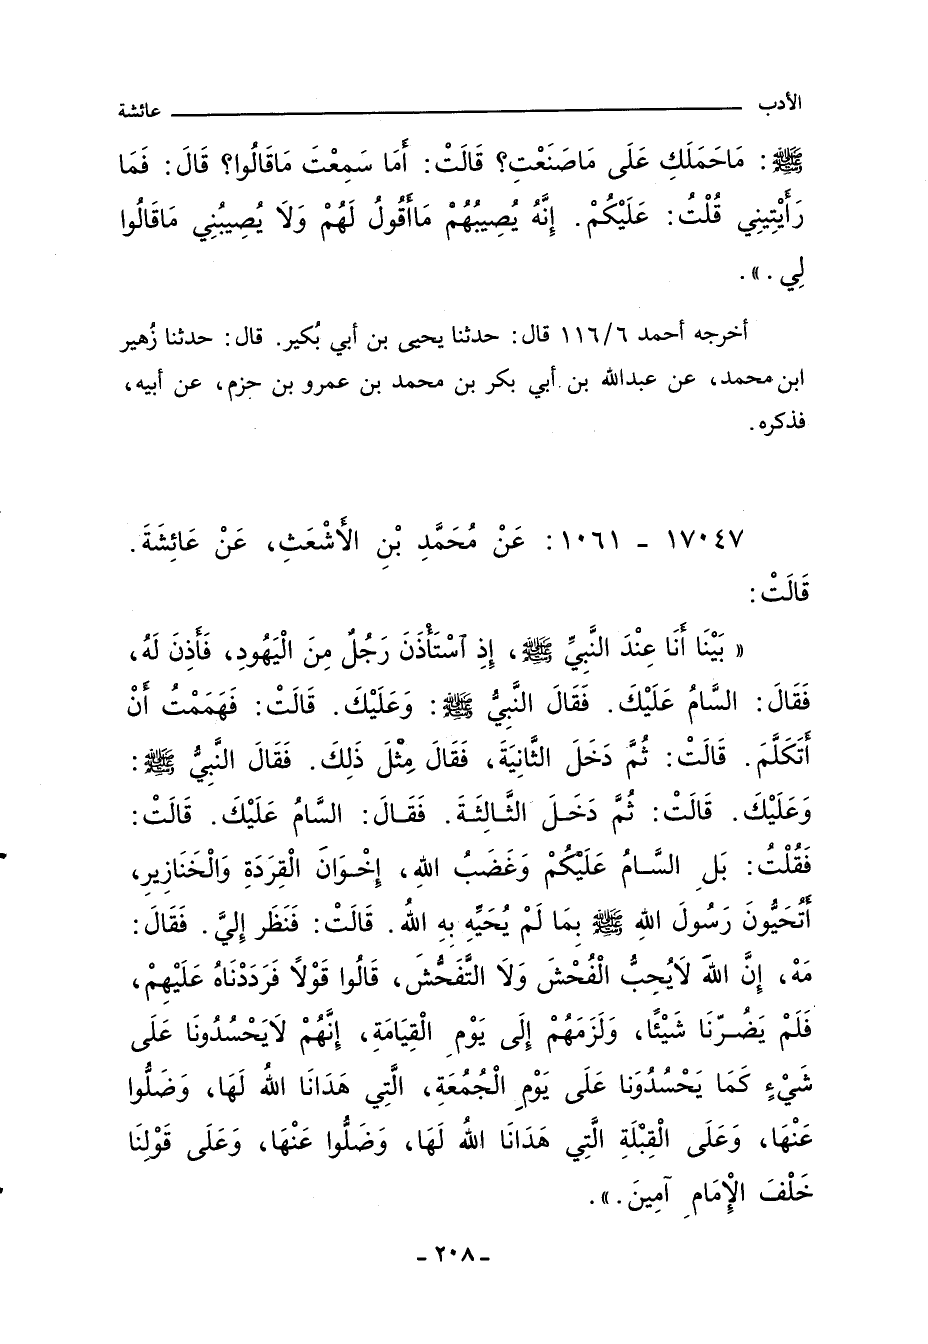 الأدب ــــــــــــــــــــ عائشة
ﷺ: مَاحَمَلَكِ عَلَى مَاصَنَعْتِ؟ قَالَتْ: أَمَا سَمِعْتَ مَاقَالُوا؟ قَالَ: فَمَا
رَأَيْتِينِي قُلْتُ: عَلَيْكُمْ. إِنَّهُ يُصِيبُهُمْ مَاأَقُولُ لَهُمْ وَلَا يُصِيبُنِي مَاقَالُوا
لِي.».
أخرجه أحمد ٦/١١٦ قال: حدثنا يحيى بن أبي بُكير. قال: حدثنا زُهير
ابن محمد، عن عبدالله بن أبي بكر بن محمد بن عمرو بن حزم، عن أبيه،
فذكره.
١٧٠٤٧ - ١٠٦١: عَنْ مُحَمَّدِ بْنِ الأَشْعَثِ، عَنْ عَائِشَةَ.
قَالَتْ:
« بَيْنَا أَنَا عِنْدَ النَّبِيِّ ﷺ، إِذِ ٱسْتَأْذَنَ رَجُلٌ مِنَ الْيَهُودِ، فَأَذِنَ لَهُ،
فَقَالَ: السَّامُ عَلَيْكَ. فَقَالَ النَّبِيُّ ﷺ: وَعَلَيْكَ. قَالَتْ: فَهَمَمْتُ أَنْ
أَتَكَلَّمَ. قَالَتْ: ثُمَّ دَخَلَ الثَّانِيَةَ، فَقَالَ مِثْلَ ذَلِكَ. فَقَالَ النَّبِيُّ ﷺ:
وَعَلَيْكَ. قَالَتْ: ثُمَّ دَخَلَ الثَّالِثَةَ. فَقَالَ: السَّامُ عَلَيْكَ. قَالَتْ:
فَقُلْتُ: بَلِ السَّامُ عَلَيْكُمْ وَغَضَبُ اللهِ، إِخْوَانَ الْقِرَدَةِ وَالْخَنَازِيرِ،
أَتُحَيُّونَ رَسُولَ اللهِ ﷺ بِمَا لَمْ يُحَيِّهِ بِهِ اللهُ. قَالَتْ: فَنَظَر إِلَيَّ. فَقَالَ:
مَهْ، إِنَّ اللهَ لَايُحِبُّ الْفُحْشَ وَلَا التَّفَحُّشَ، قَالُوا قَوْلاً فَرَدَدْنَاهُ عَلَيْهِمْ،
فَلَمْ يَضُرّنَا شَيْئًا، وَلَزَمَهُمْ إِلَى يَوْمِ الْقِيَامَةِ، إِنَّهُمْ لَايَحْسُدُونَا عَلَى
شَيْءٍ كَمَا يَحْسُدُوَنا عَلَى يَوْمِ الْجُمُعَةِ، الَّتِي هَدَانَا اللهُ لَهَا، وَضَلُّوا
عَنْهَا، وَعَلَى الْقِبْلَةِ الَّتِي هَدَانَا اللهُ لَهَا، وَضَلُّوا عَنْهَا، وَعَلَى قَوْلِنَا
خَلْفَ الْإِمَامِ آمِينَ.».
- ٢٠٨ -